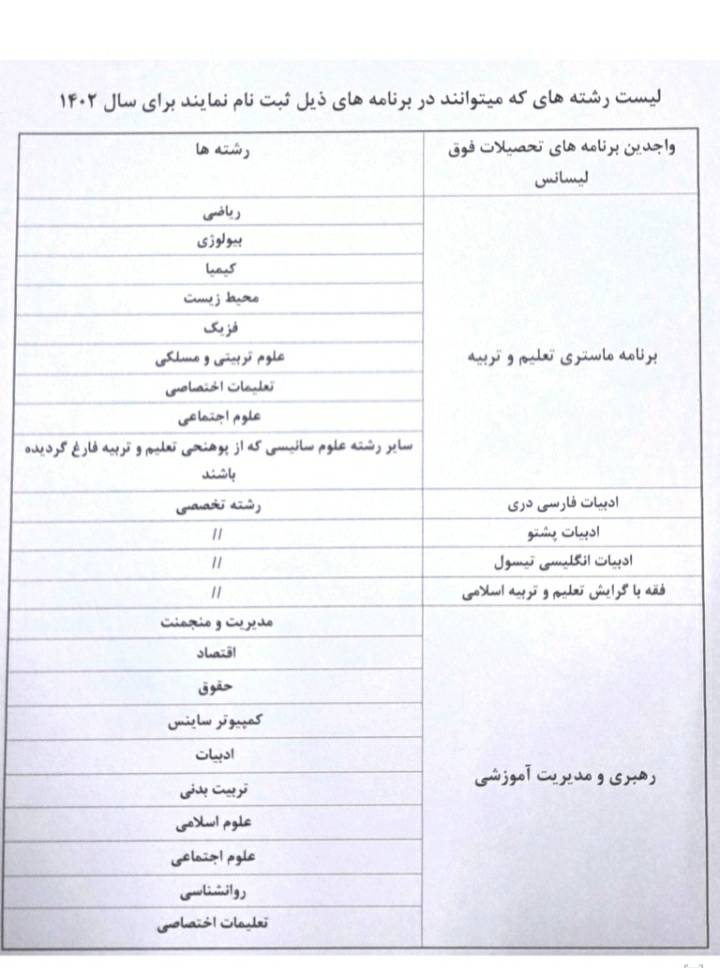 لیست رشته های که میتوانند در برنامه های ذیل ثبت نام نمایند برای سال ۱۴۰۲
واجدین برنامه های تحصیلات فوق
لیسانس
رشته ها
برنامه ماستری تعلیم و تربیه
ریاضی
بیولوژی
کیمیا
محیط زیست
فزیک
علوم تربیتی و مسلکی
تعلیمات اختصاصی
علوم اجتماعی
سایر رشته علوم سانیسی که از پوهنحی تعلیم و تربیه فارغ گردیده
باشند
ادبیات فارسی دری
رشته تخصصی
ادبیات پشتو
//
ادبیات انگلیسی تیسول
//
فقه با گرایش تعلیم و تربیه اسلامی
//
رهبری و مدیریت آموزشی
مدیریت و منجمنت
اقتصاد
حقوق
کمپیوتر ساینس
ادبیات
تربیت بدنی
علوم اسلامی
علوم اجتماعی
روانشناسی
تعلیمات اختصاصی